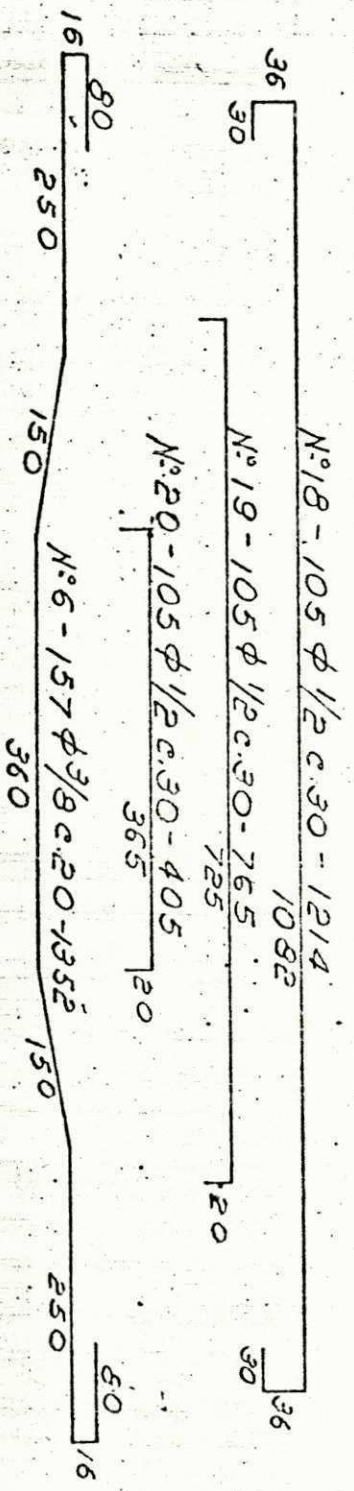 36
30
Nº 18 - 105 ϕ 1/2 c.30 - 1214
1082
30
36
Nº 19 - 105 ϕ 1/2 c.30 - 765
725
20
Nº 20 - 105 ϕ 1/2 c.30 - 405
365
20
16
80
250
150
Nº 6 - 157 ϕ 3/8 c.20 - 1352
360
150
250
80
16